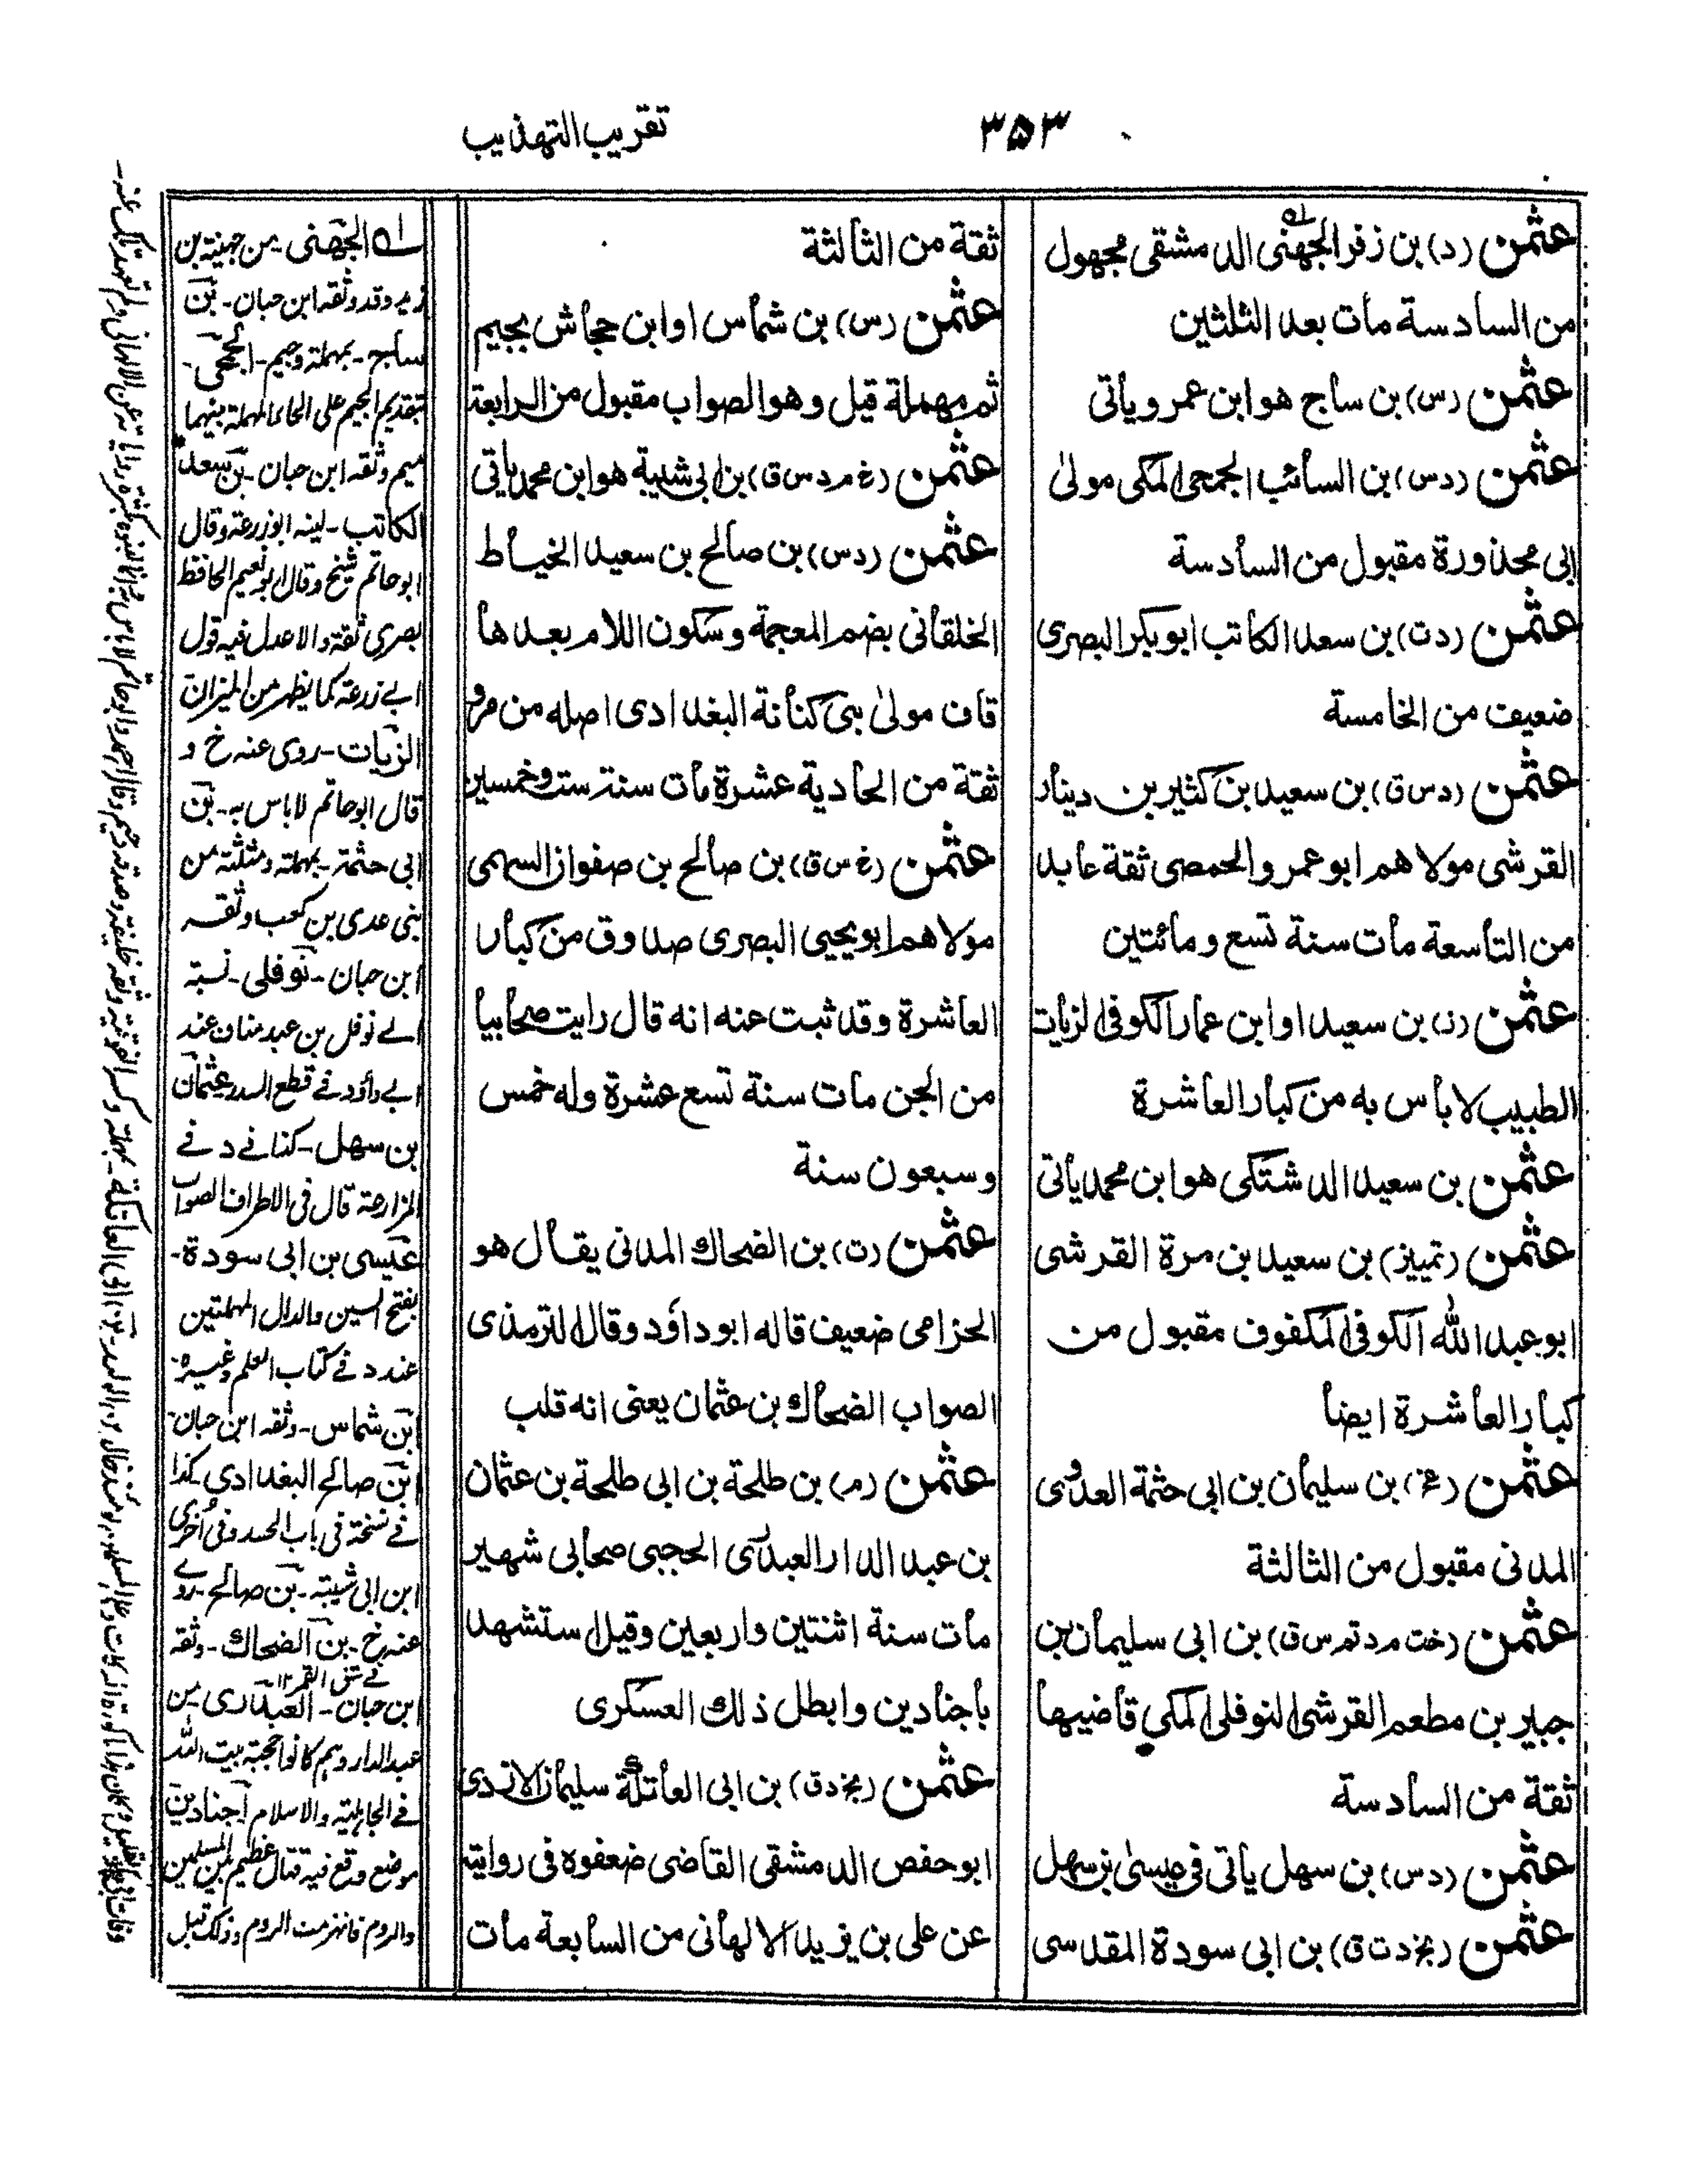 ۳۵۳
تقريب التهذيب
عثمن (د) بن زفر الجهنى الدمشقى مجهول
من السادسة مات بعد الثلثين
عثمن (س) بن ساج هو ابن عمرو ياتى
عثمن (دس) بن السائب الجمحى المكى مولى
ابى محذورة مقبول من السادسة
عثمن (دت) بن سعد الكاتب ابو بكر البصرى
ضعيف من الخامسة
عثمن (دس ق) بن سعيد بن كثير بن دينار
القرشى مولاهم ابو عمرو الحمصى ثقة عابد
من التاسعة مات سنة تسع ومائتين
عثمن (ز) بن سعيد او ابن عمار الكوفى الزيات
الطبيب لا باس به من كبار العاشرة
عثمن بن سعيد الدشتكى هو ابن محمد ياتى
عثمن (تمييز) بن سعيد بن مرة القرشى
ابو عبد الله الكوفى المكفوف مقبول من
كبار العاشرة ايضا
عثمن (عخ) بن سليمان بن ابى حثمة العدوى
المدنى مقبول من الثالثة
عثمن (خت م د تم س ق) بن ابى سليمان بن
جبير بن مطعم القرشى النوفلى المكى قاضيها
ثقة من السادسة
عثمن (دس) بن سهل ياتى فى عيسى بن سهل
عثمن (بخ دت ق) بن ابى سودة المقدسى
ثقة من الثالثة
عثمن (س) بن شماس او ابن جحاش بجيم
ثم مهملة قيل وهو الصواب مقبول من الرابعة
عثمن (خ م د س ق) بن ابى شيبة هو ابن محمد ياتى
عثمن (دس) بن صالح بن سعيد الخياط
الخلقانى بضم المعجمة وسكون اللام بعدها
قاف مولى بنى كنانة البغدادى اصله من مرو
ثقة من الحادية عشرة مات سنة ست وخمسين
عثمن (خ س ق) بن صالح بن صفوان السهمى
مولاهم ابو يحيى البصرى صدوق من كبار
العاشرة وقد ثبت عنه انه قال رايت صحابيا
من الجن مات سنة تسع عشرة وله خمس
وسبعون سنة
عثمن (ت) بن الضحاك المدنى يقال هو
الحزامى ضعيف قاله ابو داؤد وقال الترمذى
الصواب الضحاك بن عثمان يعنى انه قلب
عثمن (م) بن طلحة بن ابى طلحة بن عثمان
بن عبد الدار العبدرى الحجبى صحابى شهير
مات سنة اثنتين واربعين وقيل ستشهد
باجنادين وابطل ذلك العسكرى
عثمن (بخ دق) بن ابى العاتكة سليمان الازدى
ابو حفص الدمشقى القاضى ضعفوه فى روايته
عن على بن يزيد الالهانى من السابعة مات
له الجهنى - من جهينة بن
زيد وقد وثقه ابن حبان - بن
ساج - بمهملة وجيم - الجمحى -
بتقديم الجيم على الحاء المهملة بينهما
ميم وثقه ابن حبان - بن سعد
الكاتب - لينه ابو زرعة وقال
ابو حاتم شيخ وقال ابو نعيم الحافظ
بصرى ثقة والاعدل فيه قول
ابے زرعة كما يظهر من الميزان
الزيات - روى عنه خ و
قال ابو حاتم لا باس به - بن
ابى حثمة - بمهملة ومثلثة من
بنى عدى بن كعب وثقه
ابن حبان - نوفلى - نسبة
الے نوفل بن عبد مناف عند
ابے داؤد فے قطع السدر عثمان
بن سهل - كذا فے د فے
المزارعة قال فى الاطراف الصواب
عيسى بن ابى سودة -
بفتح السين والدال المهملتين
عند د فے كتاب العلم وغيره -
ابن شماس - وثقه ابن حبان -
بن صالح البغدادى كذا
فے نسخة فى باب الحسد وفى اخرى
ابن ابى شيبة - بن صالح - روے
عنه خ - بن الضحاك - وثقه
فے شق القمر ۱۲
ابن حبان - العبدرى - من
عبد الدار وهم كانوا حجبة بيت الله
فے الجاهلية والاسلام اجنادين
موضع وقع فيه قتال عظيم بين المسلمين
والروم فانهزمت الروم وذلك قبل